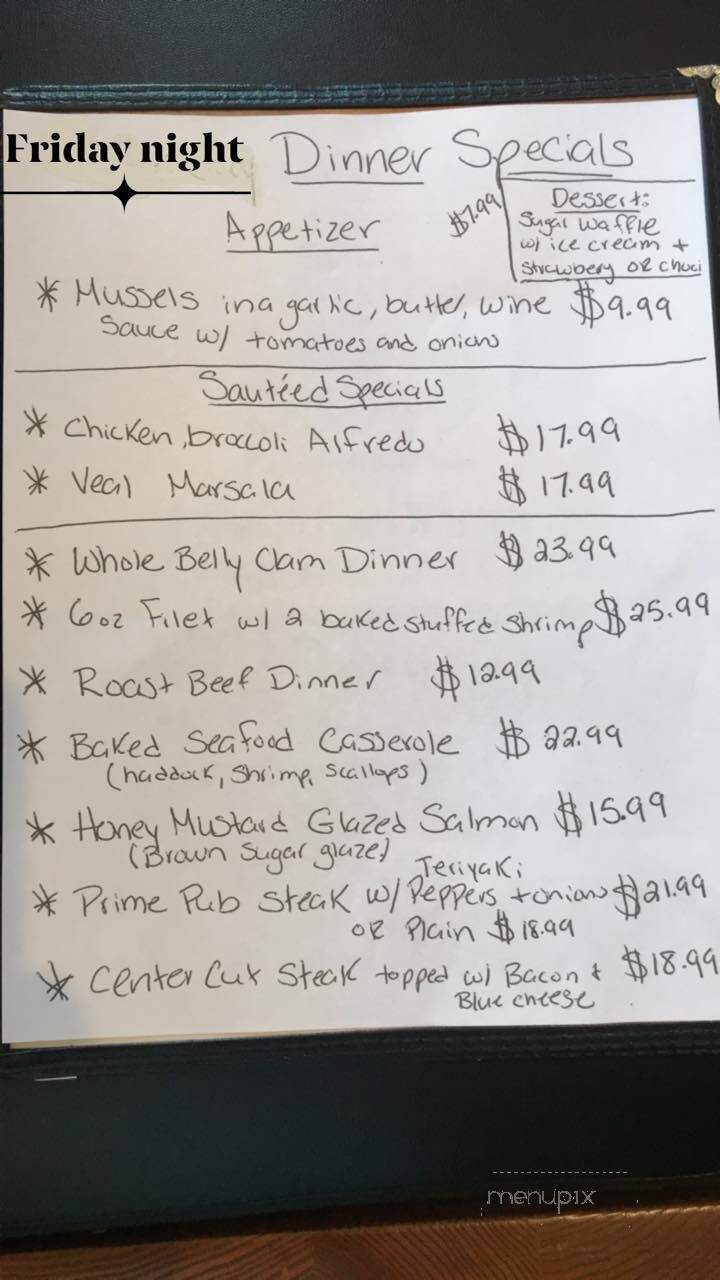 Friday night
Dinner Specials
$7.99
Dessert:
Sugar Waffle
w/ ice cream +
Strawbery OR choci
Appetizer
* Mussels in a garlic, butter, wine $9.99
Sauce w/ tomatoes and onions
Sautéed Specials
* Chicken, broccoli Alfredo $17.99
* Veal Marsala $17.99
* Whole Belly Clam Dinner $23.99
* 6oz Filet w/ 2 baked stuffed shrimp $25.99
* Roast Beef Dinner $12.99
* Baked Seafood Casserole $22.99
(haddock, Shrimp, Scallops)
* Honey Mustard Glazed Salmon $15.99
(Brown Sugar glaze)
Teriyaki
* Prime Pub Steak w/ Peppers + onions $21.99
OR Plain $18.99
* Center Cut Steak topped w/ Bacon & $18.99
Blue cheese
menupix